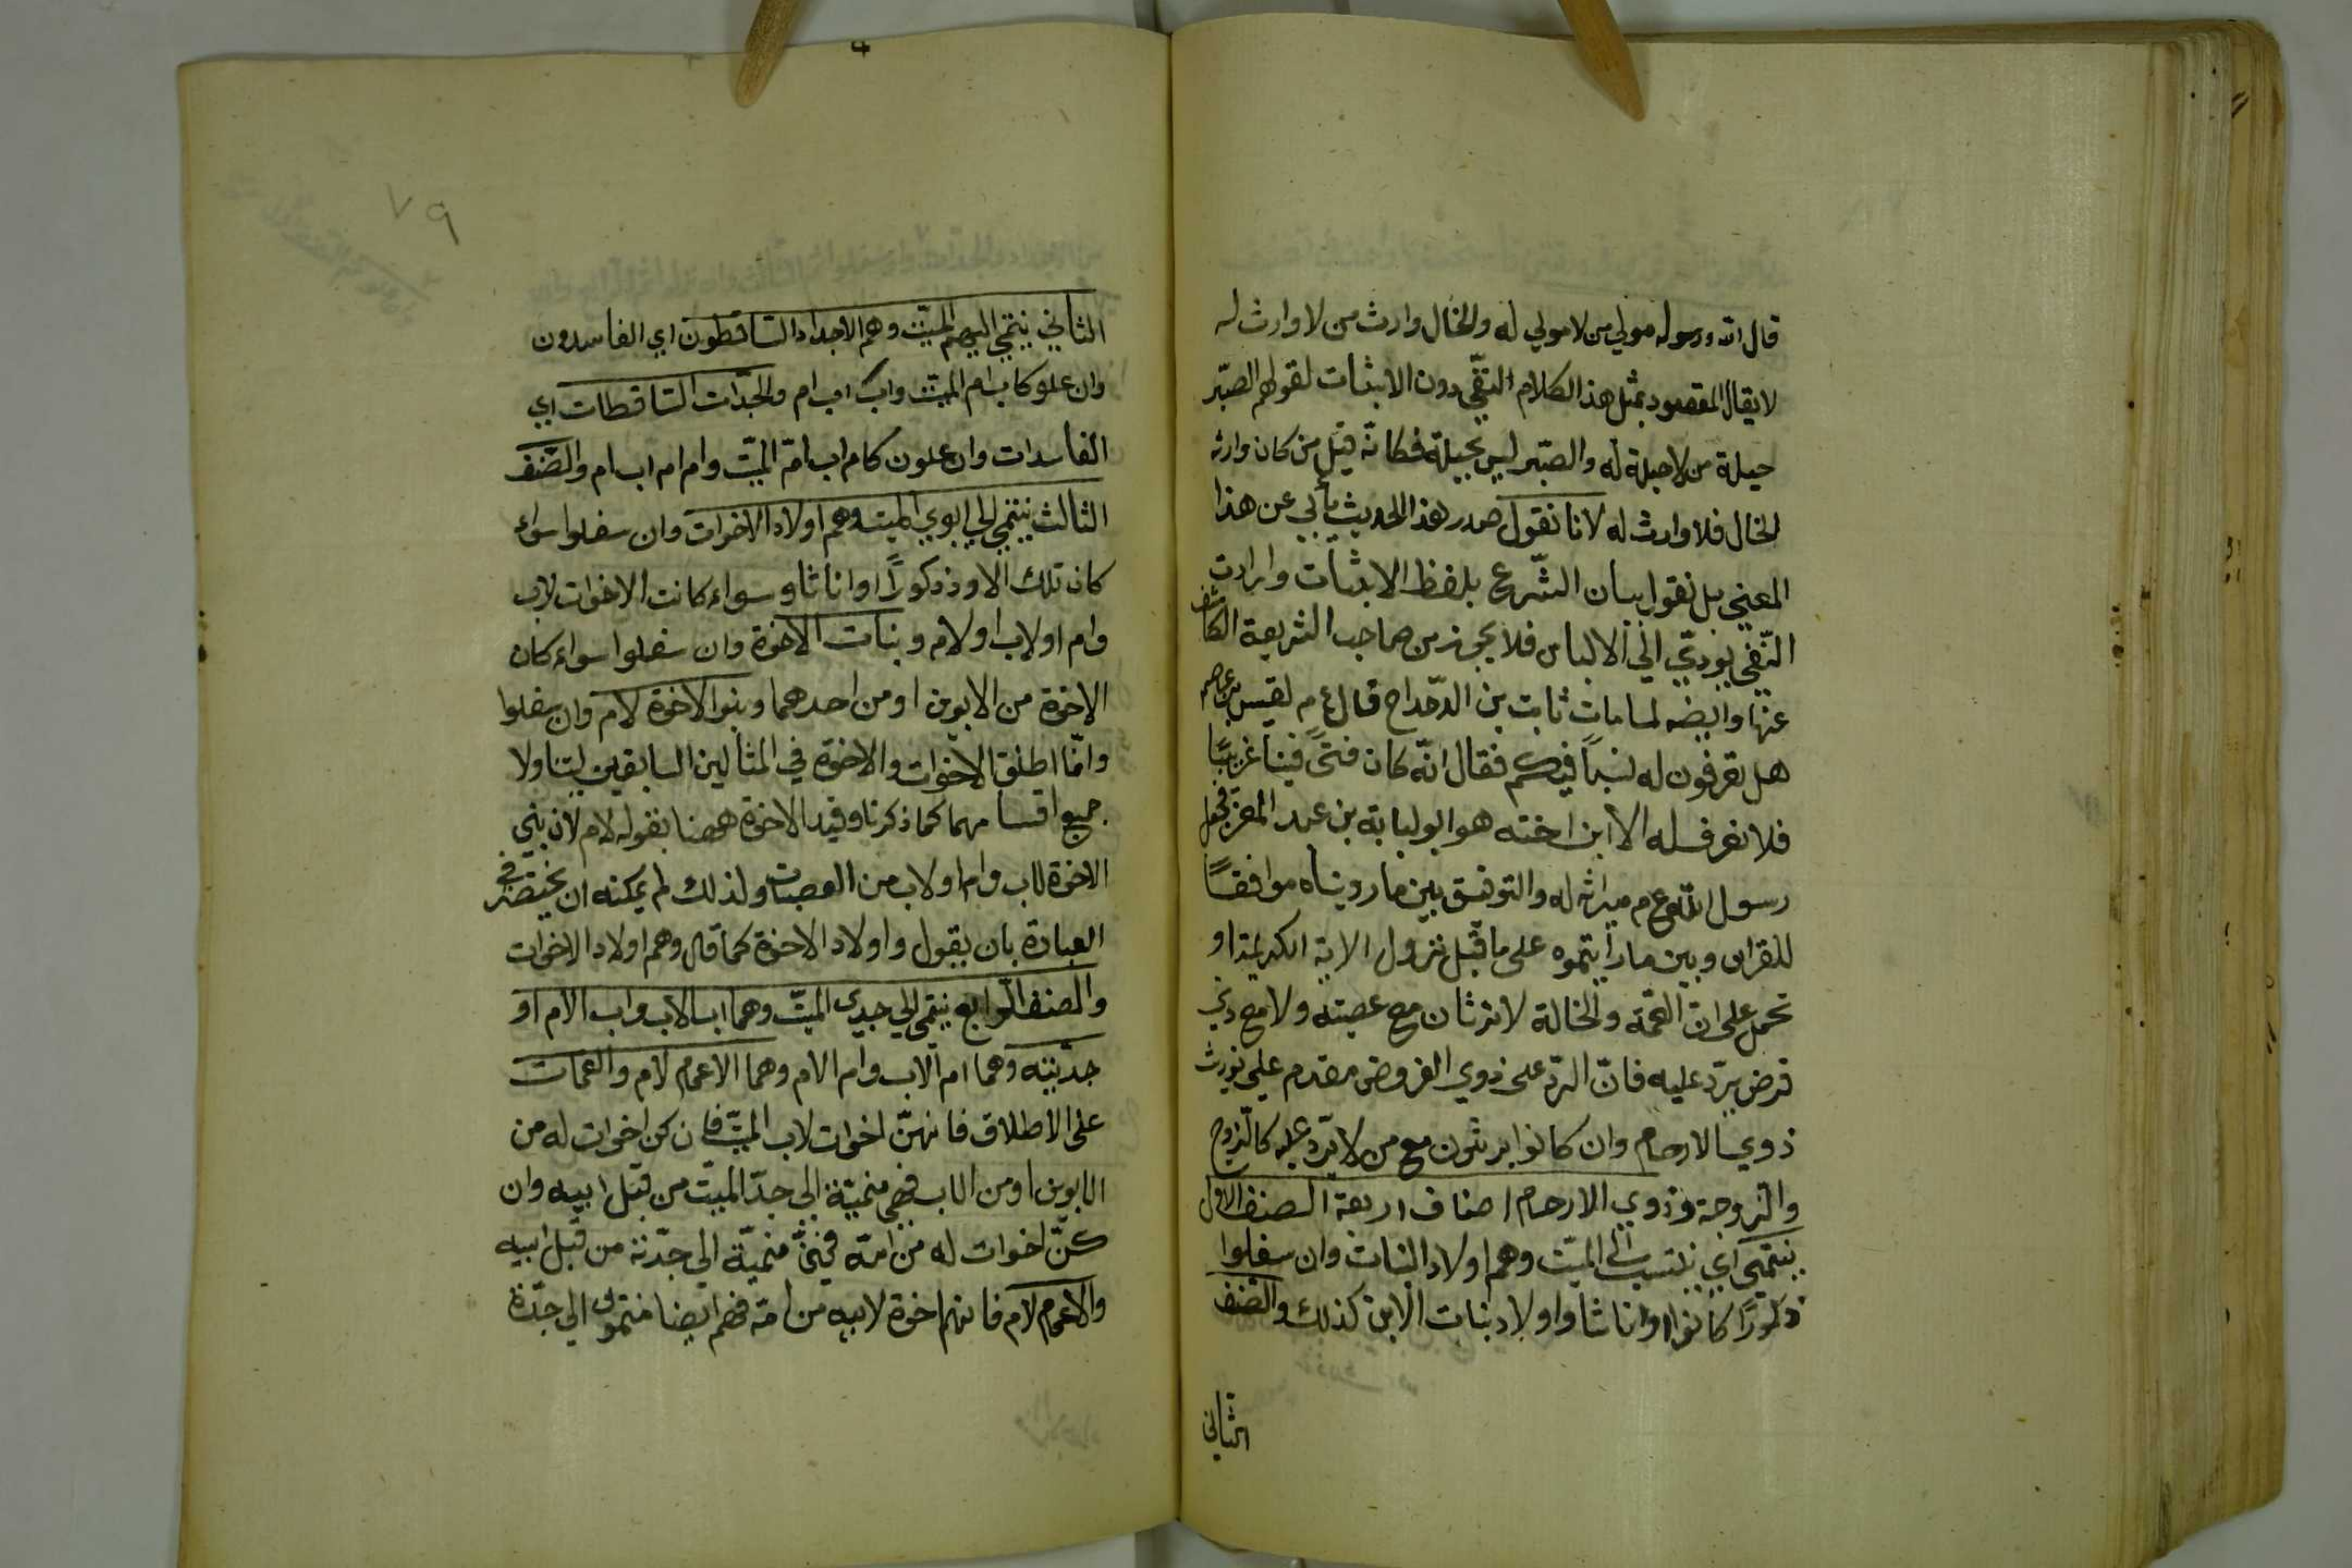 قال الله ورسوله مولي من لا مولي له والخال وارث من لا وارث له
لا يقال المقصود بمثل هذا الكلام النفي دون الاثبات لقولهم الصبر
حيلة من لا حيلة له والصبر ليس بحيلة فكانه قيل من كان وارثه
الخال فلا وارث له لانا نقول صدر هذا الحديث يأبي عن هذا
المعني بل نقول بيان الشرع بلفظ الاثبات وارادت
النفي يودي الي الالباس فلا يجوز من صاحب الشريعة الكاشف
عنها وايضه لما مات ثابت بن الدحداح قال ع م لقيس بن عاصم
هل تعرفون له نسباً فيكم فقال انه كان فتيً فينا غريبًا
فلا نعرف له الا ابن اخته هو ابو لبابة بن عبد المعز فجعل
رسول الله ع م ميراثه له والتوفيق بين ما رويناه موافقاً
للقران وبين ما رأيتموه على ما قبل نزول الاية الكريمة او
تحمل على ان العمة والخالة لا ترثان مع عصبته ولا مع ذي
فرض يرد عليه فان الرد على ذوي الفروض مقدم علي توريث
ذوي الارحام وان كانوا يرثون مع من لا يرد عليه كالزوج
والزوجة وذوي الارحام اصناف اربعة الصنف الاول
ينتمي اي ينتسب الي الميت وهم اولاد البنات وان سفلوا
ذكورًا كانوا او اناثا واولاد بنات الابن كذلك والصنف
الثاني
٧٩
الثاني ينتمي اليهم الميت وهم الاجداد الساقطون اي الفاسدون
وان علو كاب ام الميت واب اب ام والجدات الساقطات اي
الفاسدات وان علون كام اب امّ الميت وام ام اب ام والصنف
الثالث ينتمي الي ابوي الميت وهم اولاد الاخوات وان سفلوا سواء
كان تلك الاود ذكورًا او اناثا وسواء كانت الاخوات لاب
وام اولاب اولام وبنات الاخوة وان سفلوا سواء كان
الاخوة من الابوين او من احدهما وبنو الاخوة لام وان سفلوا
وانّما اطلق الاخوات والاخوة في المثالين السابقين ليتناولا
جميع اقسامهما كما ذكرنا وقيد الاخوة ههنا بقوله لام لان بني
الاخوة لاب وام اولاب من العصبات ولذلك لم يمكنه ان يختصر في
العبارة بان يقول واولاد الاخوة كما قال وهم اولاد الاخوات
والصنف الرابع ينتمي الي جدي الميت وهما اب الاب واب الام او
جدتيه وهما ام الاب وام الام وهما الاعمام لام والعمات
على الاطلاق فانهنّ اخوات لاب الميت فان كن اخوات له من
الابوين او من الاب فهي منميّة الى جدّ الميت من قبل ابيه وان
كنّ اخوات له من امّه فهي منميّة الي جدّته من قبل ابيه
والاعمام لام فانهم اخوة لابيه من امّه فهم ايضا منتمون الي جدّة